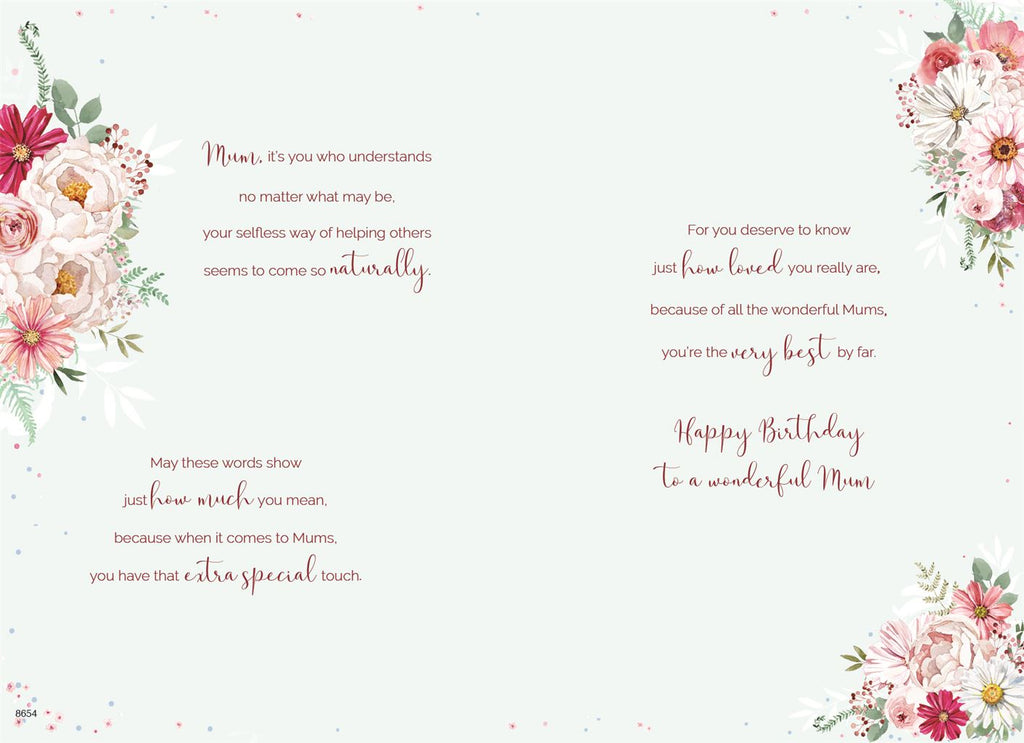 Mum, it's you who understands
no matter what may be,
your selfless way of helping others
seems to come so naturally.
May these words show
just how much you mean,
because when it comes to Mums,
you have that extra special touch.
For you deserve to know
just how loved you really are,
because of all the wonderful Mums,
you're the very best by far.
Happy Birthday
to a wonderful Mum
8654